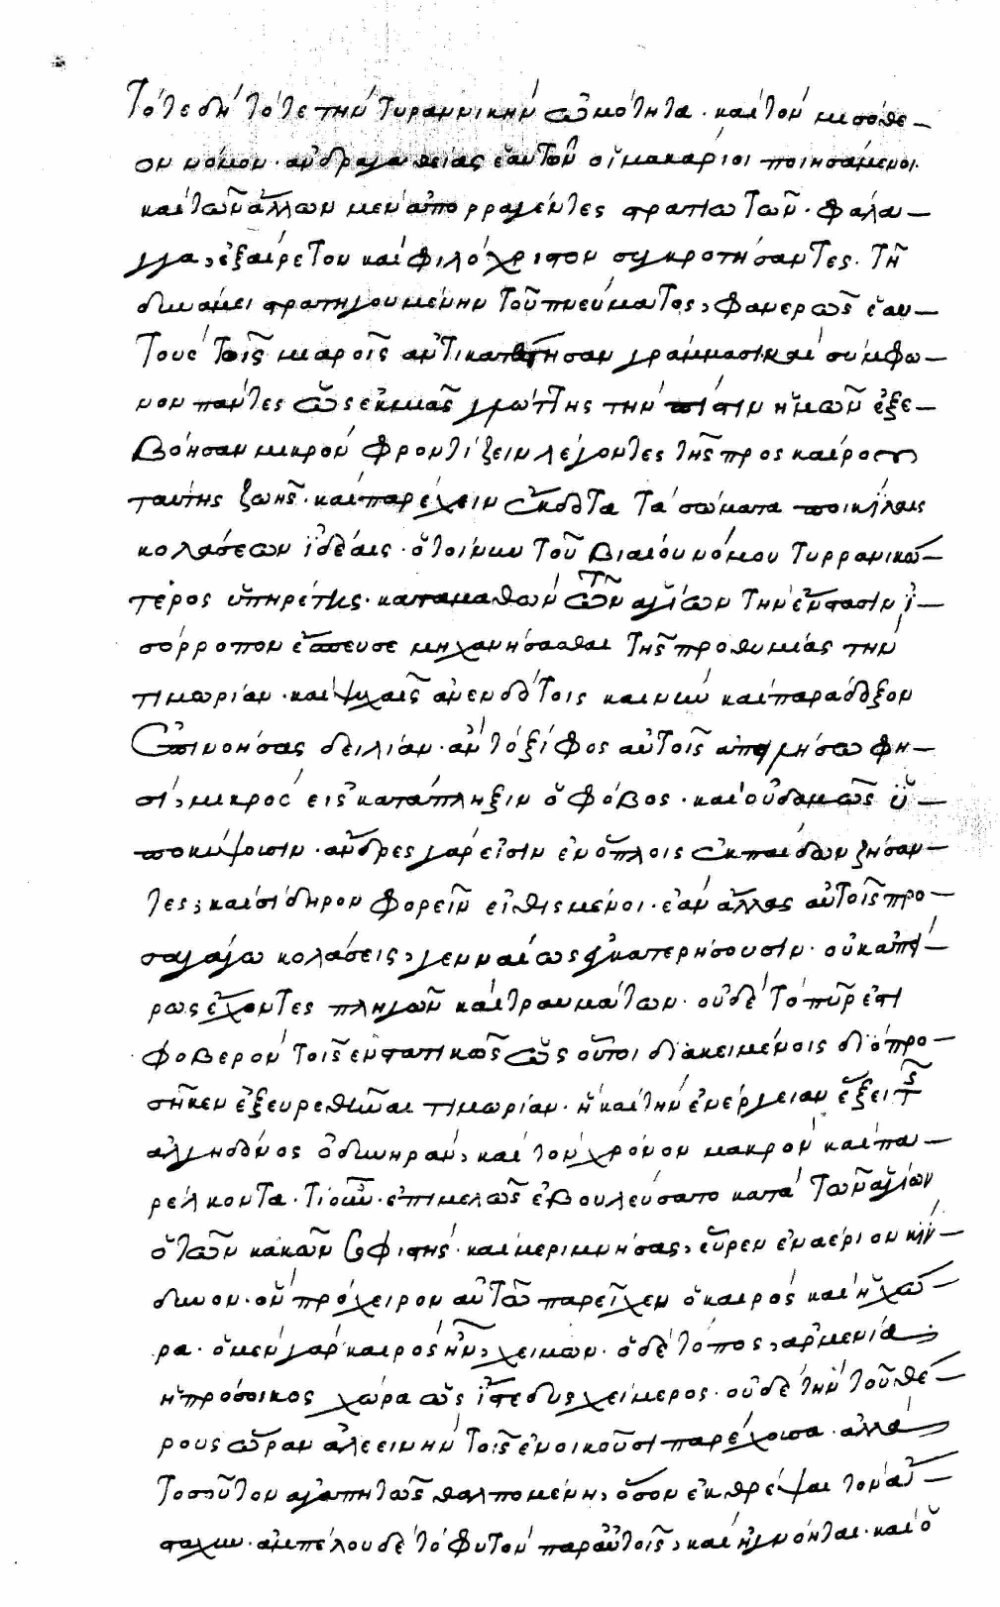 Τότε δὴ τότε τὴν τυραννικὴν ὠμότητα· καὶ τὸν μισόθε–
ον νόμον· ἀνδραγαθείας ἑαυτῶν οἱ μακάριοι ποιησάμενοι·
καὶ τῶν ἄλλων μὲν ἀπορραγέντες στρατιωτῶν· φάλαγ–
γα, ἐξαίρετον καὶ φιλόχριστον συγκροτήσαντες· τῇ
δυνάμει στρατηγουμένην τοῦ πνεύματος, φανερῶς ἑαυ–
τοὺς τοῖς μιαροῖς ἀντικατέστησαν γράμμασι καὶ σύμφω–
νον πάντες ὡς ἐκ μιᾶς γλώττης τὴν πίστιν ἡμῶν ἐξε–
βόησαν μικρὸν φροντίζειν λέγοντες τῆς προσκαίρου
ταύτης ζωῆς· καὶ παρέχειν ἔκδοτα τὰ σώματα ποικίλαις
κολάσεων ἰδέαις· ὁ τοίνυν τοῦ βιαίου νόμου τυρρανικώ–
τερος ὑπηρέτης· καταμαθὼν τῶν ἁγίων τὴν ἔνστασιν ἰ–
σόρροπον ἔσπευσε μηχανήσασθαι τῆς προθυμίας τὴν
τιμωρίαν· καὶ ψυχαῖς ἀνενδότοις καινὴν καὶ παράδοξον
ἐπινοήσας δειλίαν· ἂν τὸ ξίφος αὐτοῖς ἀπειλήσω φη–
σὶ, μικρὸς εἰς κατάπληξιν ὁ φόβος· καὶ οὐδαμῶς ὑ–
ποκύψουσιν· ἄνδρες γὰρ εἰσὶν ἐνόπλοις ἐκ παίδων ζήσαν–
τες, καὶ σίδηρον φορεῖν εἰθισμένοι· ἐὰν ἄλλας αὐτοῖς προ–
σαγάγω κολάσεις, γενναίως ἐγκατερήσουσιν· οὐκ ἀπεί–
ρως ἔχοντες πληγῶν καὶ τραυμάτων· οὐδὲ τὸ πῦρ ἐστὶ
φοβερὸν τοῖς ἐνστατικῶς ὡς οὗτοι διακειμένοις διὸ προ–
σῆκεν ἐξευρεθῆναι τιμωρίαν· ἣ καὶ τὴν ἐνέργειαν ἕξει τῆς
ἀλγηδόνος ὀδυνηρὰν, καὶ τὸν χρόνον μακρὸν καὶ πα–
ρέλκοντα· τί οὖν· ἐπιμελῶς ἐβουλεύσατο κατὰ τῶν ἁγίων
ὁ τῶν κακῶν σοφιστής· καὶ μεριμνήσας, εὗρεν ἐναέριον κίν–
δυνον· ὃν πρόχειρον αὐτῷ παρεῖχεν ὁ καιρὸς καὶ ἡ χώ–
ρα· ὁ μὲν γὰρ καιρὸς ἦν, χειμών· ὁ δὲ τόπος, ἀρμενία,
ἡ πρόσοικος χώρα ὡς ἴστε δυσχείμερος· οὐδὲ τὴν τοῦ θέ–
ρους ὥραν ἀλεεινὴν τοῖς ἐνοικοῦσι παρέχουσα· ἀλλὰ
τοσοῦτον ἀγαπητῶς θαλπομένη, ὅσον ἐκθρέψαι τὸν ἄ–
σταχυν· ἀμπέλου δὲ τὸ φυτὸν παρ᾽ αὐτοῖς, καὶ ἠγνόηται· καὶ ὁ